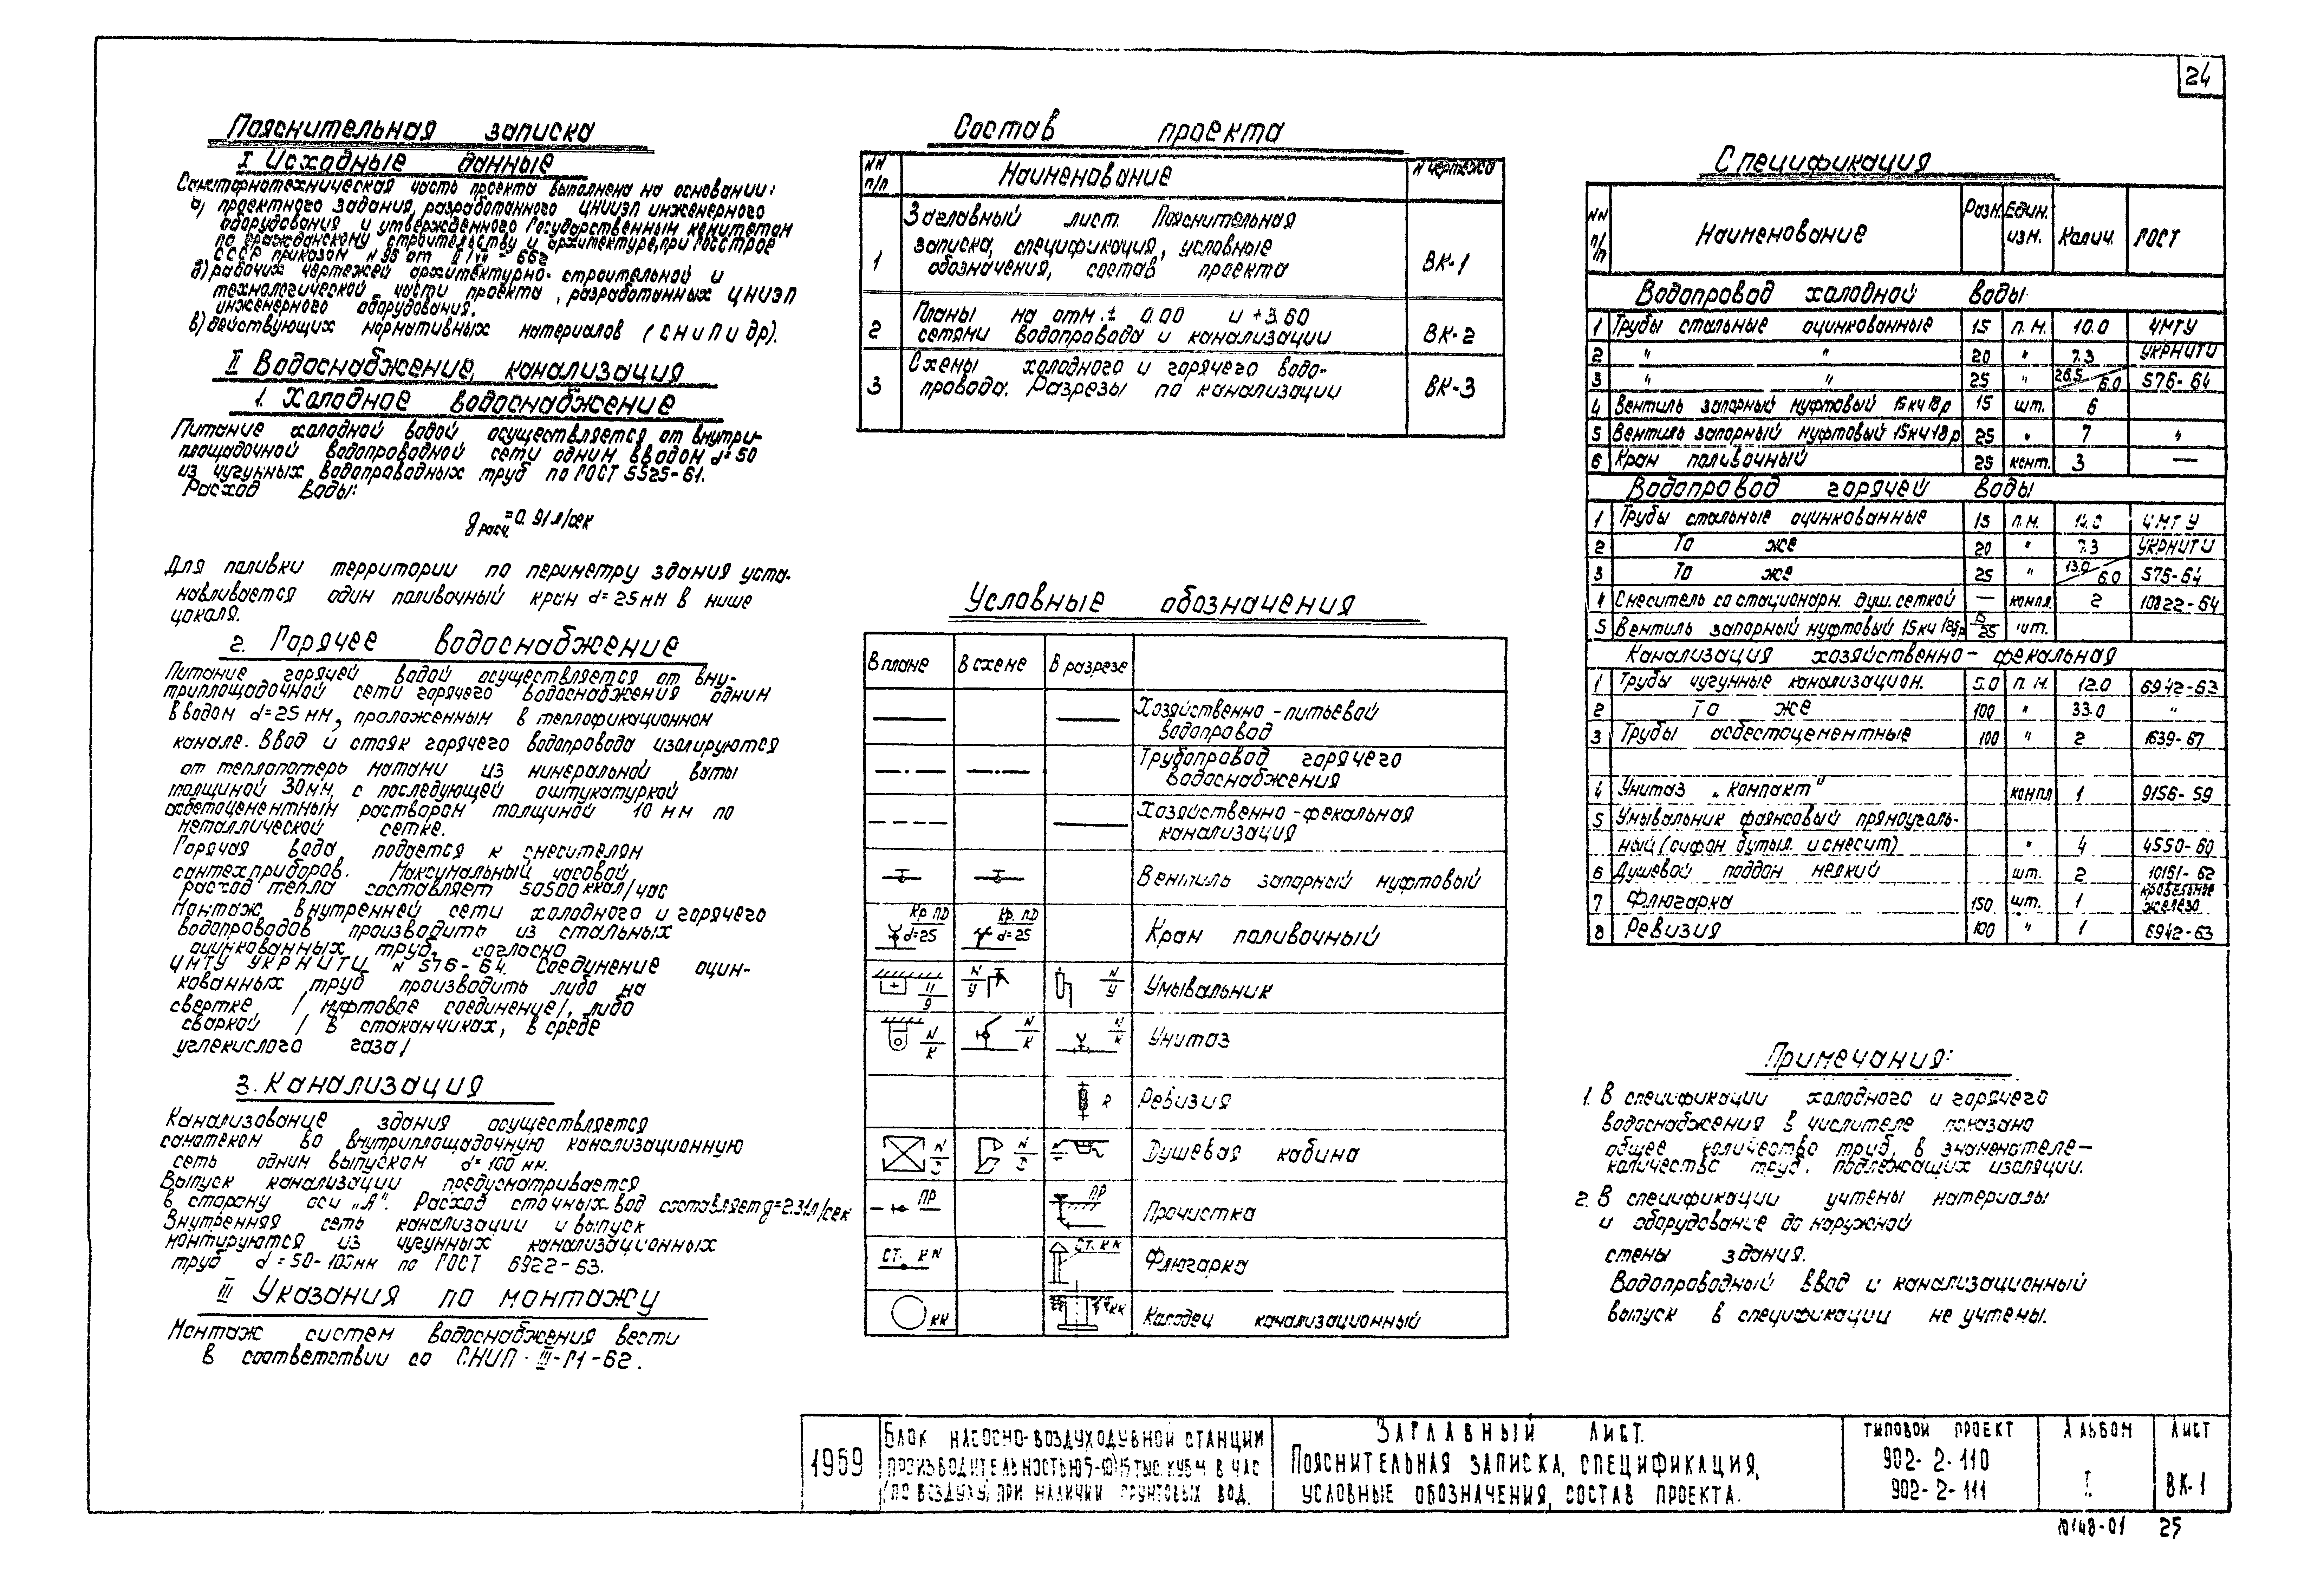 24
Пояснительная записка
I Исходные данные
Санитарнотехническая часть проекта выполнена на основании:
а) проектного задания, разработанного ЦНИИЭП инженерного
оборудования и утвержденного Государственным комитетом
по гражданскому строительству и архитектуре, при Госстрое
СССР приказом N 96 от
б) рабочих чертежей архитектурно-строительной и
технологической части проекта, разработанных ЦНИИЭП
инженерного оборудования.
в) действующих нормативных материалов (СНиП и др).
II Водоснабжение, канализация
1. Холодное водоснабжение
Питание холодной водой осуществляется от внутри-
площадочной водопроводной сети одним вводом d=50
из чугунных водопроводных труб по ГОСТ 5525-61.
Расход воды:
q расч. = 0.91 л/сек
Для поливки территории по периметру здания уста-
навливается один поливочный кран d=25мм в нише
цоколя.
2. Горячее водоснабжение
Питание горячей водой осуществляется от вну-
триплощадочной сети горячего водоснабжения одним
вводом d=25 мм, проложенным в теплофикационном
канале. Ввод и стояк горячего водопровода изолируются
от теплопотерь матами из минеральной ваты
толщиной 30мм, с последующей оштукатуркой
асбетоцементным раствором толщиной 10 мм по
металлической сетке.
Горячая вода подается к смесителям
сантехприборов. Максимальный часовой
расход тепла составляет 50500 ккал/час
Монтаж внутренней сети холодного и горячего
водопроводов производить из стальных
оцинкованных труб, согласно
ЧМТУ УКРНИТИ N 576-64. Соединение оцин-
кованных труб производить либо на
свертке / муфтовое соединение/, либо
сваркой / в стаканчиках, в среде
углекислого газа/
3. Канализация
Канализование здания осуществляется
самотеком во внутриплощадочную канализационную
сеть одним выпуском d=100 мм.
Выпуск канализации предусматривается
в сторону оси „А". Расход сточных вод составляет q=2.31л/сек
Внутренняя сеть канализации и выпуск
монтируются из чугунных канализационных
труб d=50-100мм по ГОСТ 6922-63.
III Указания по монтажу
Монтаж систем водоснабжения вести
в соответствии со СНИП III-Г1-62.
Состав проекта
NN п/п Наименование N чертежа
1 Заглавный лист. Пояснительная
записка, спецификация, условные
обозначения, состав проекта ВК-1
2 Планы на отм. ± 0.00 и +3.60
сетями водопровода и канализации ВК-2
3 Схемы холодного и горячего водо-
провода. Разрезы по канализации ВК-3
Условные обозначения
В плане В схеме В разрезе
Хозяйственно-питьевой
водопровод
Трубопровод горячего
водоснабжения
Хозяйственно-фекальная
канализация
Вентиль запорный муфтовый
Кр ПД d=25 Кр. ПД d=25 Кран поливочный
11/9 N/У N/У Умывальник
N/К N/К N/К Унитаз
R Ревизия
N N Душевая кабина
ПР ПР Прочистка
СТ. КN СТ. КN Флюгарка
КК КК Колодец канализационный
Спецификация
NN п/п Наименование Разм. Един. изм. Колич. ГОСТ
Водопровод холодной воды
1 Трубы стальные оцинкованные 15 п.м. 10.0 ЧМТУ
2 " " 20 " 7.3 УКРНИТИ
3 " " 25 " 26.5/6.0 576-64
4 Вентиль запорный муфтовый 15кч18р 15 шт. 6
5 Вентиль запорный муфтовый 15кч18р 25 " 7 "
6 Кран поливочный 25 комт. 3 —
Водопровод горячей воды
1 Трубы стальные оцинкованные 15 п.м. ЧМТУ
2 То же 20 " 7.3 УКРНИТИ
3 То же 25 " 13.0/6.0 576-64
4 Смеситель со стационарн. душ. сеткой — компл. 2 10822-64
5 Вентиль запорный муфтовый 15кч 18бр 15/25 шт.
Канализация хозяйственно-фекальная
1 Трубы чугунные канализацион. 5.0 п.м. 12.0 6942-63
2 То же 100 " 33.0 "
3 Трубы асбестоцементные 100 " 2 1839-67
4 Унитаз „Компакт" компл 1 9156-59
5 Умывальник фаянсовый прямоуголь-
ный (сифон бутыл. и смесит) " 4 4550-60
6 Душевой поддон мелкий шт. 2 10161-62
7 Флюгарка 150 шт. 1 кровельное железо
8 Ревизия 100 " 1 6942-63
Примечания:
1. В спецификации холодного и горячего
водоснабжения в числителе показано
общее количество труб, в знаменателе—
количество труб, подлежащих изоляции.
2. В спецификации учтены материалы
и оборудование до наружной
стены здания.
Водопроводный ввод и канализационный
выпуск в спецификации не учтены.
1969
Блок насосно-воздуходувной станции
производительностью 5-10) 15 тыс. куб м в час
(по воздуху) при наличии грунтовых вод.
Заглавный лист.
Пояснительная записка, спецификация,
условные обозначения, состав проекта.
Типовой проект
902-2-110
902-2-111
Альбом
I
Лист
ВК-1
10148-01 25